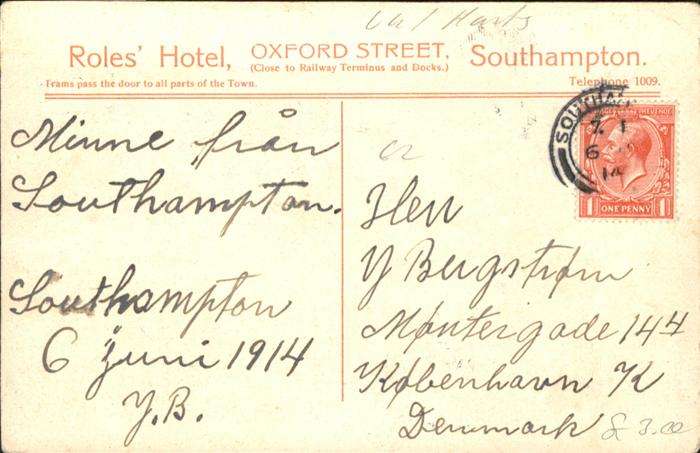 Roles' Hotel, OXFORD STREET, Southampton.
(Close to Railway Terminus and Docks.)
Trams pass the door to all parts of the Town.
Telephone 1009.
Minne från
Southampton.
Southampton
6 Juni 1914
Y.B.
Herr
Y Bergstrøm
Møntergade 14 4
København K
Denmark
£ 3.00
SOUTHAM
6
14
ONE PENNY
1 1